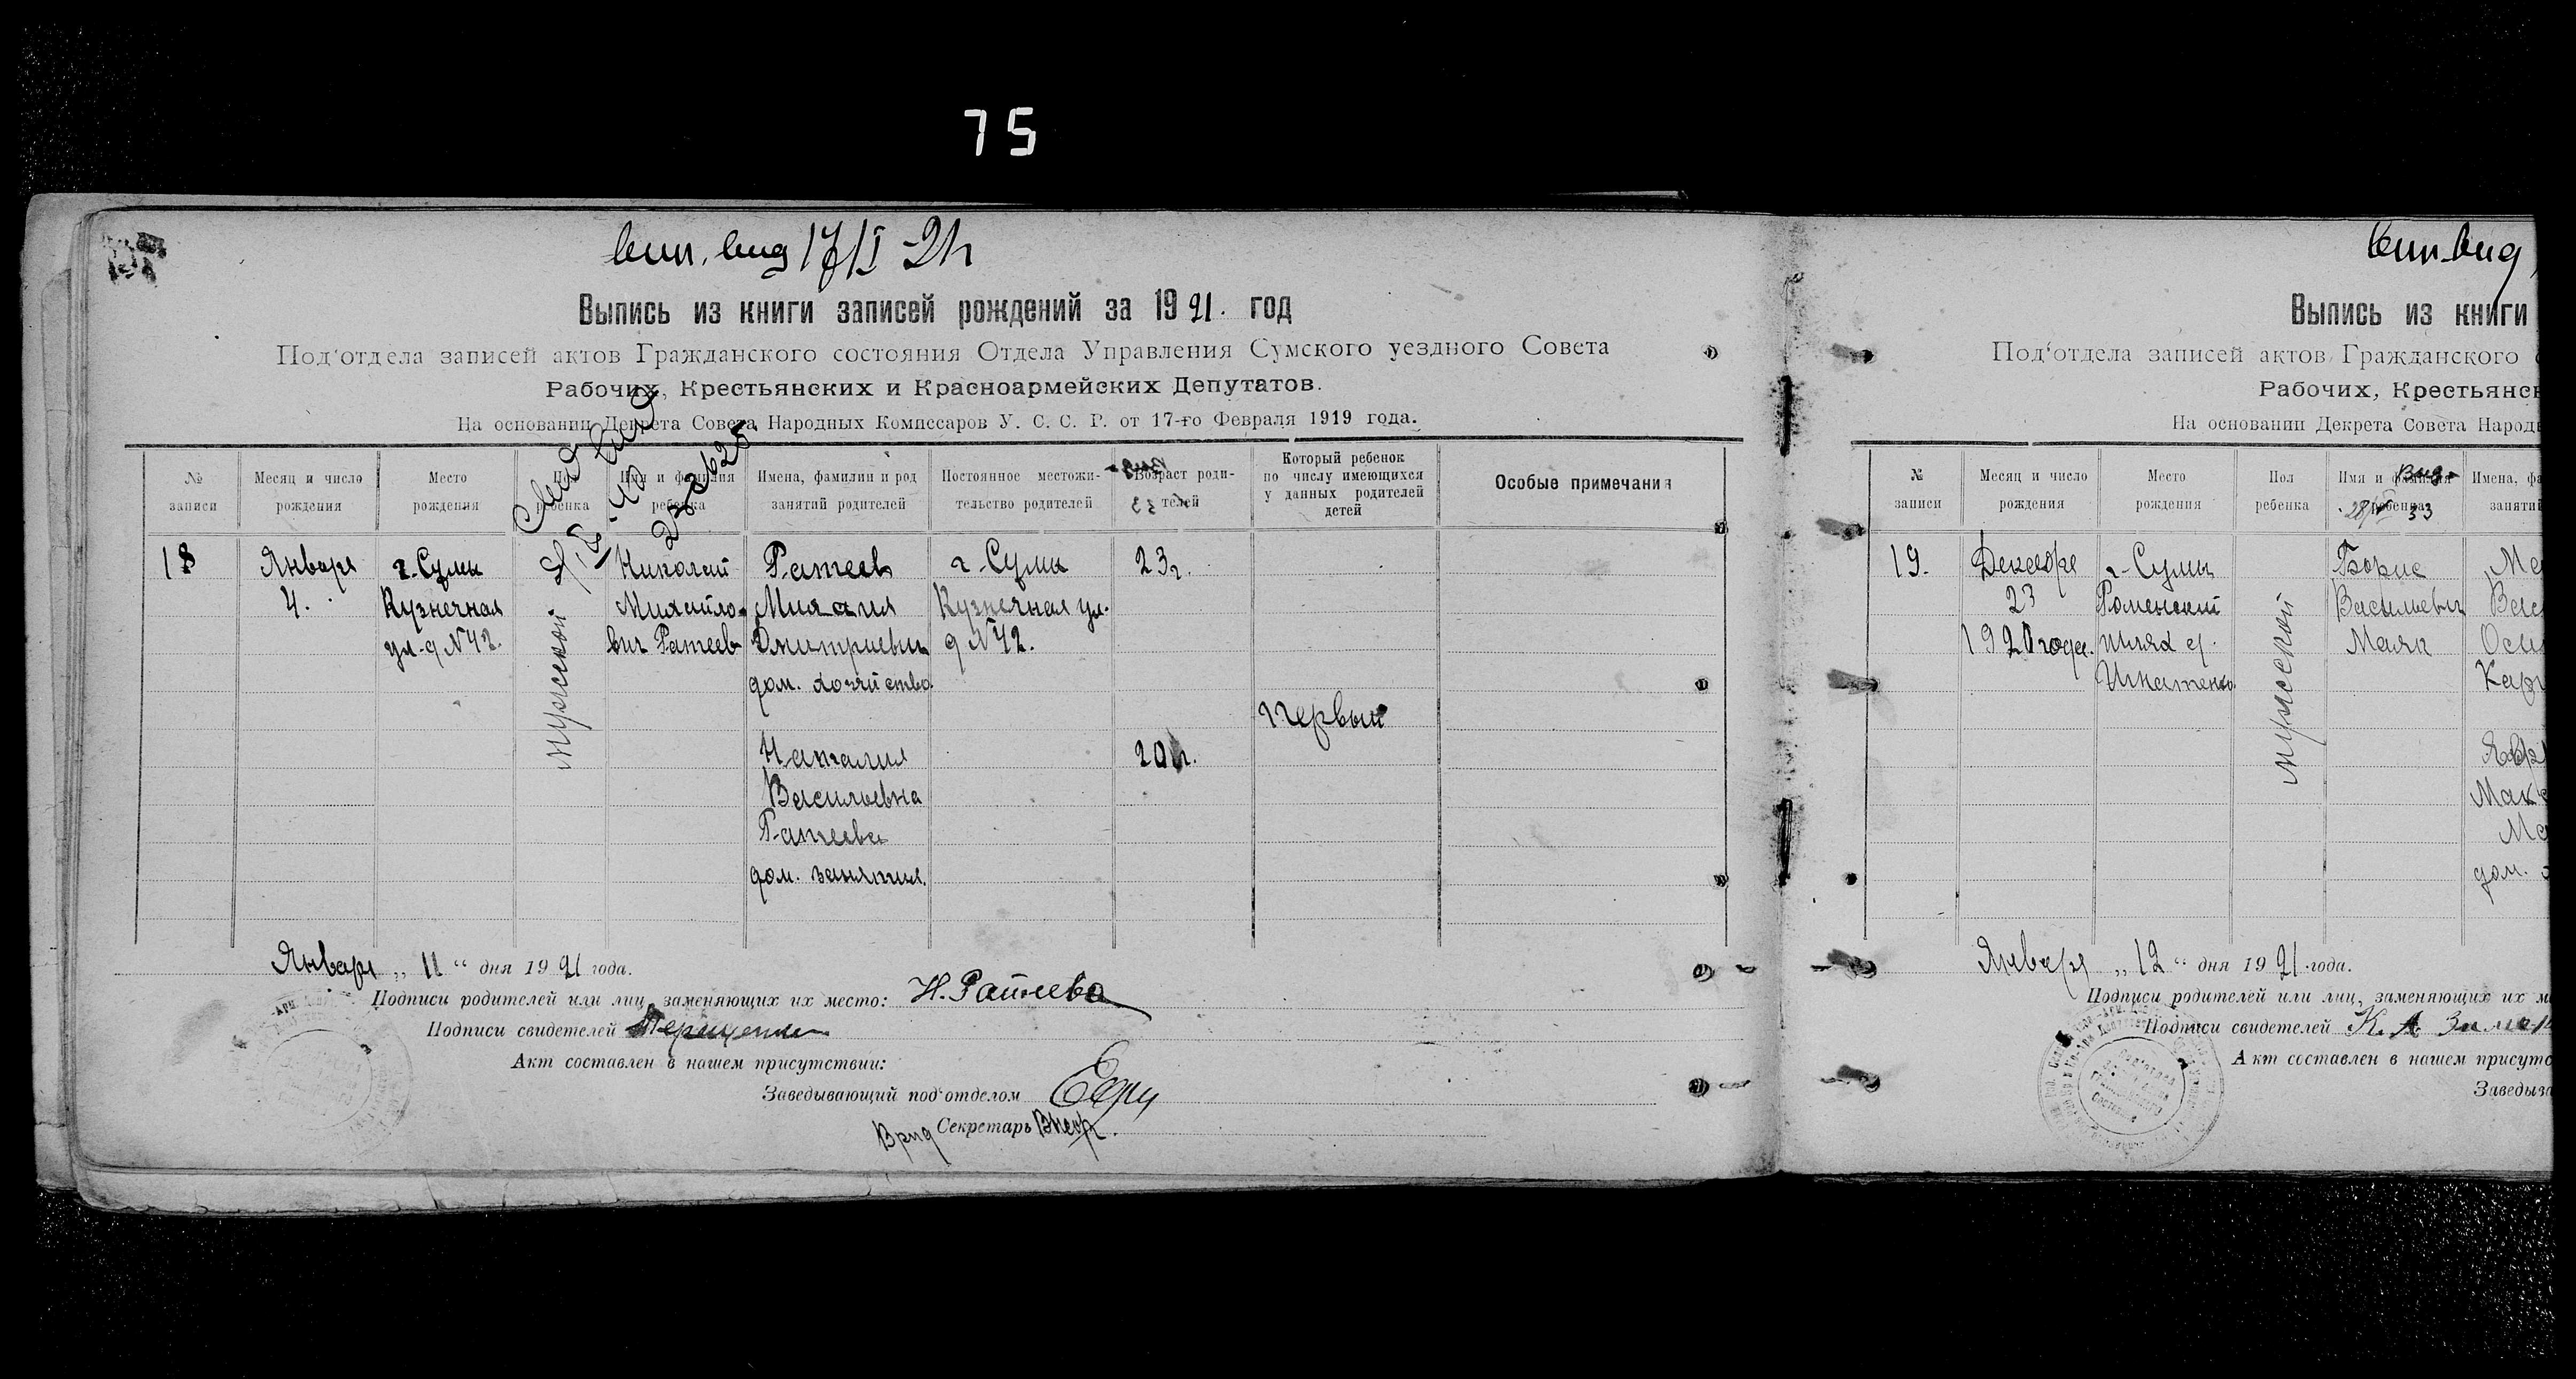 75
вип. вид 17/I-21г
Выпись из книги записей рождений за 1921. год
Под'отдела записей актов Гражданского состояния Отдела Управления Сумского уездного Совета
Рабочих, Крестьянских и Красноармейских Депутатов.
На основании Декрета Совета Народных Комиссаров У. С. С. Р. от 17-го Февраля 1919 года.
№ записи
Месяц и число рождения
Место рождения
Пол ребенка
Имя и фамилия ребенка
Имена, фамилии и род занятий родителей
Постоянное местожительство родителей
Возраст родителей
Который ребенок по числу имеющихся у данных родителей детей
Особые примечания
18
Января
4.
г. Сумы
Кузнечная
ул. д N 42.
мужеской
Николай
Михайло-
вич Ратеев
Ратеев
Михаил
Дмитриевич
дом. хозяйство.
Наталия
Васильевна
Ратеева
дом. занятия.
г. Сумы
Кузнечная ул.
д N 42.
23 г.
20 г.
первый
Января „ 11 “ дня 1921 года.
Подписи родителей или лиц, заменяющих их место: Н. Ратеева
Подписи свидетелей
Акт составлен в нашем присутствии:
Заведывающий под'отделом
Врид Секретарь
вип. вид
Выпись из книги
Под'отдела записей актов Гражданского
Рабочих, Крестьянск
На основании Декрета Совета Народн
№ записи
Месяц и число рождения
Место рождения
Пол ребенка
Имя и фамилия ребенка
Имена, фа
заняти
19.
Декабря
23
1920 года.
г. Сумы
Роменский
шлях д.
Игнатенко.
мужеской
Борис
Васильевич
Маяк
Января „ 12 “ дня 1921 года.
Подписи родителей или лиц, заменяющих их м
Подписи свидетелей К. А.
Акт составлен в нашем присутс
Заведыва